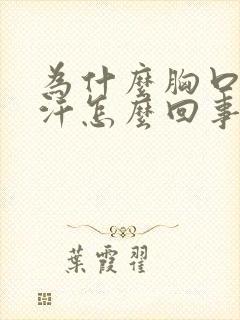 為什麼胸口
汗怎麼回事
葉霞翟